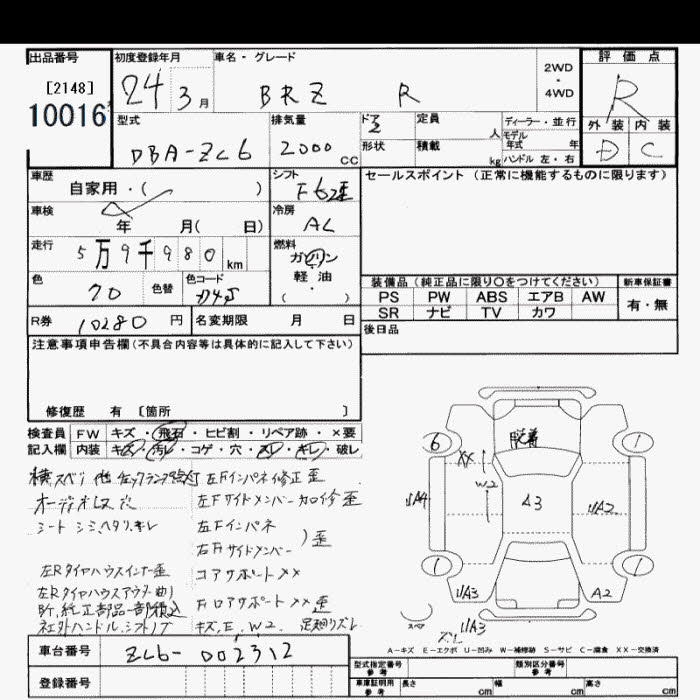 出品番号
[2148]
10016
初度登録年月
24 3月
車名・グレード
BRZ R
2WD
・
4WD
評価点
R
外装 内装
D C
型式
DBA-ZC6
排気量
2000 CC
ドア
2
形状
定員
人
積載
kg
ディーラー・並行
モデル
年式 年
ハンドル 左・右
車歴
自家用・( )
シフト
F6
車検
年 月( 日)
冷房
AC
走行
5万9千980km
燃料
ガソリン
軽・油
( )
色
色替
色コード
セールスポイント (正常に機能するものに限ります)
装備品 (純正品に限り○をつけてください)
新車保証書
PS PW ABS エアB AW
SR ナビ TV カワ
有・無
R券
10280円
名変期限 月 日
後日品
注意事項申告欄(不具合内容等は具体的に記入して下さい)
修復歴 有 [箇所 ]
検査員 FW キズ・飛石・ヒビ割・リペア跡・×要
記入欄 内装 キズ・汚レ・コゲ・穴・スレ・キレ・破レ
横スベリ 他 チェックランプ点灯
オーディオレス 穴
シート シミ、ヘタリ、キレ
左Rタイヤハウスインナー歪
左Rタイヤハウスアウター曲り
社外ハンドル、シフトノブ
左Fインパネ修正 歪
左Fサイドメンバー 歪
左Fインパネ
右Fサイドメンバー
歪
コアサポート××
Fロアサポート×× 歪
キズ, E, W2,
脱着
6
1
XX
W2
A3
UA4
UA2
1
1
UA3
A2
スペア
UA3
A-キズ E-エクボ U-凹み W-補修跡 S-サビ C-腐食 XX-交換済
車台番号
ZC6-002312
登録番号
型式指定番号
参考
類別区分番号
参考
車庫証明用
参考
長さ cm
幅 cm
高さ cm